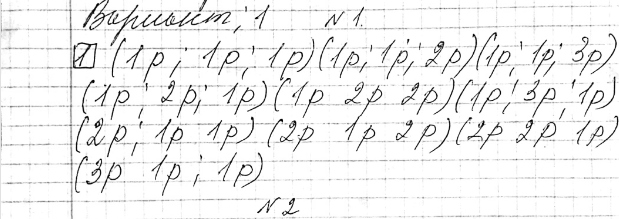 Вариант; 1 №1.
1 (1р; 1р; 1р)(1р; 1р; 2р)(1р; 1р; 3р)
(1р; 2р; 1р)(1р 2р 2р)(1р; 3р; 1р)
(2р; 1р 1р)(2р 1р 2р)(2р 2р 1р)
(3р 1р; 1р)
№2